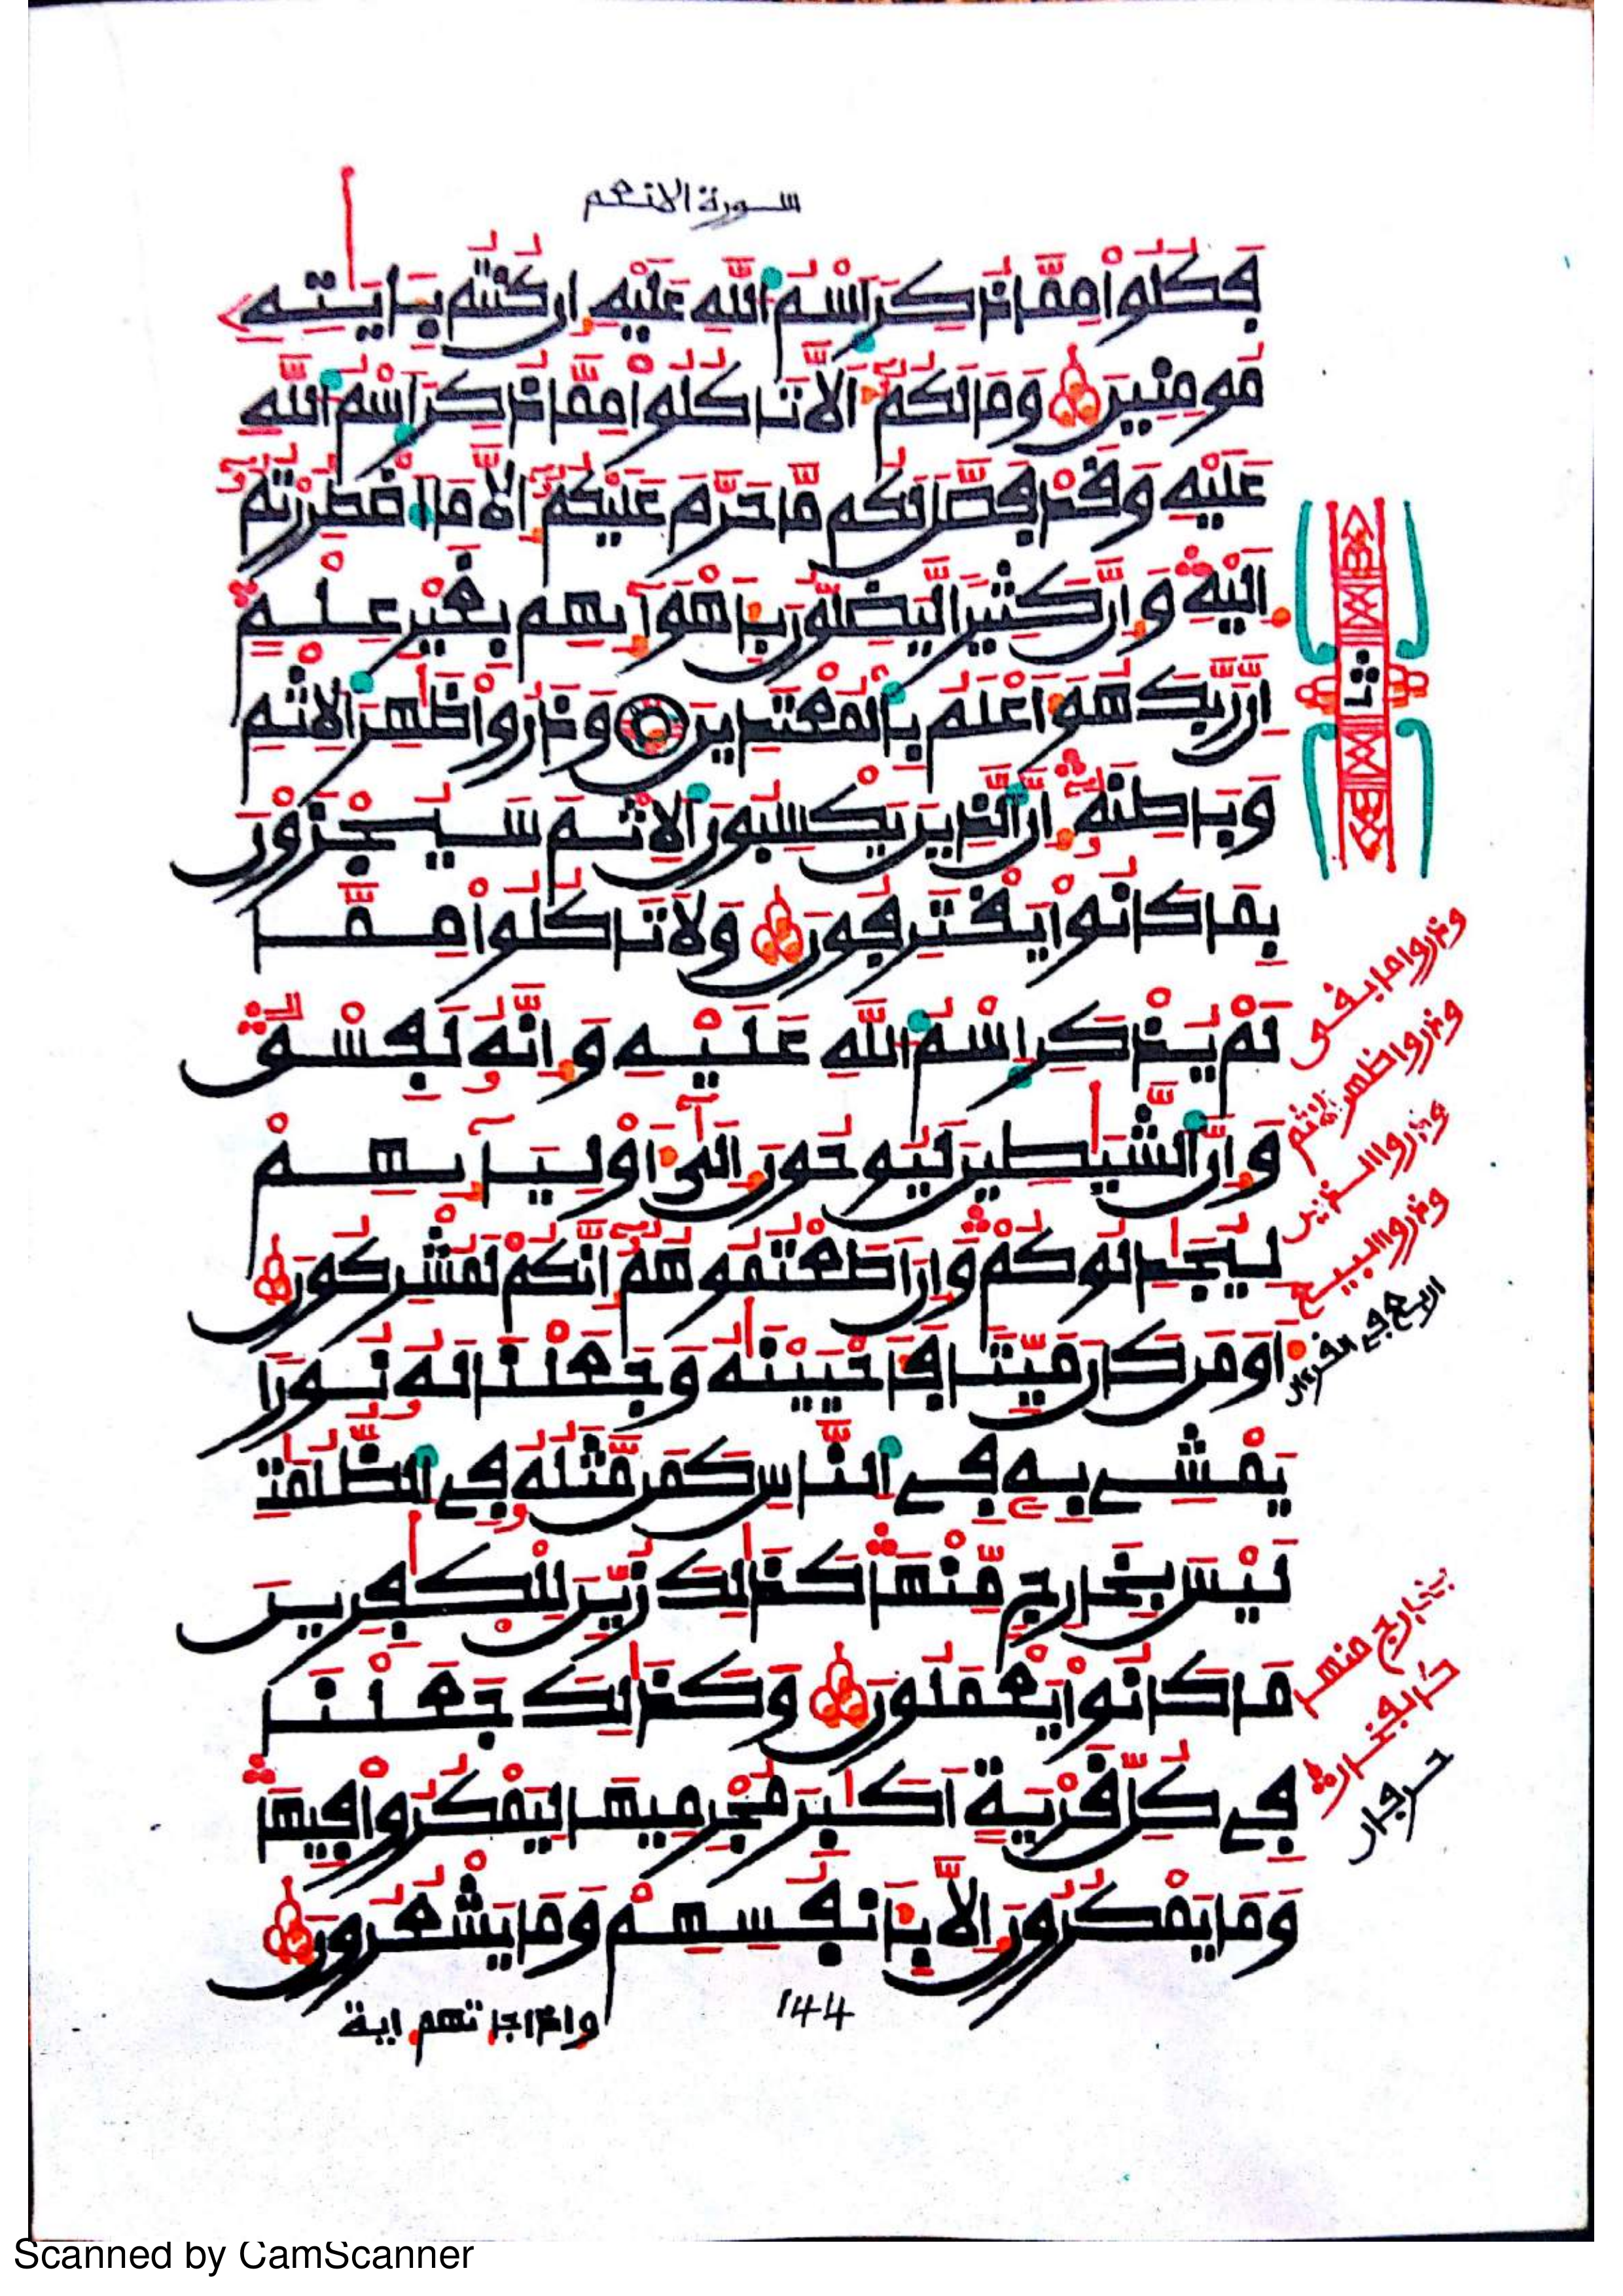 سورة الانعم
فَكُلُواْ مِمَّا ذُكِرَ اَسْمُ اُللَّهِ عَلَيْهِ إِن كُنتُم بِـَٔايَٰتِهِ
مُومِنِينَ وَمَا لَكُمُۥٓ أَلَّا تَاكُلُواْ مِمَّا ذُكِرَ اَسْمُ اُللَّهِ
عَلَيْهِ وَقَدْ فَصَّلَ لَكُم مَّا حَرَّمَ عَلَيْكُمُۥٓ إِلَّا مَا اَضْطُرِرْتُمُۥٓ
إِلَيْهِ وَإِنَّ كَثِيرًا لَّيَضِلُّونَ بِأَهْوَآئِهِم بِغَيْرِ عِلْمٍ
إِنَّ رَبَّكَ هُوَ أَعْلَمُ بِالْمُعْتَدِينَ وَذَرُواْ ظَٰهِرَ اَلِاثْمِ
وَبَاطِنَهُۥٓ إِنَّ اَلذِينَ يَكْسِبُونَ اَلِاثْمَ سَيُجْزَوْنَ
بِمَا كَانُواْ يَقْتَرِفُونَ وَلَا تَاكُلُواْ مِمَّا
لَمْ يُذْكَرِ اِسْمُ اُللَّهِ عَلَيْهِ وَإِنَّهُۥ لَفِسْقٌ
وَإِنَّ اَلشَّيَٰطِينَ لَيُوحُونَ إِلَىٰٓ أَوْلِيَآئِهِمْ
لِيُجَٰدِلُوكُمْ وَإِنْ أَطَعْتُمُوهُمُۥٓ إِنَّكُمْ لَمُشْرِكُونَ
أَوَمَن كَانَ مَيِّتًا فَأَحْيَيْنَٰهُ وَجَعَلْنَا لَهُۥ نُورًا
يَمْشِے بِهِۦ فِے اِلنَّاسِ كَمَن مَّثَلُهُۥ فِے اِلظُّلُمَٰتِ
لَيْسَ بِخَارِجٍ مِّنْهَا كَذَٰلِكَ زُيِّنَ لِلْكَٰفِرِينَ
مَا كَانُواْ يَعْمَلُونَ وَكَذَٰلِكَ جَعَلْنَا
فِے كُلِّ قَرْيَةٍ أَكَٰبِرَ مُجْرِمِيهَا لِيَمْكُرُواْ فِيهَا
وَمَا يَمْكُرُونَ إِلَّا بِأَنفُسِهِمْ وَمَا يَشْعُرُونَ
وذروا ما بقى
وذروا ظهر الاثم
وذروا الذين
وذروا البيع
اربع في القرءان
بخارج منها
حرفان
144
واذا جاتهم اية
Scanned by CamScanner